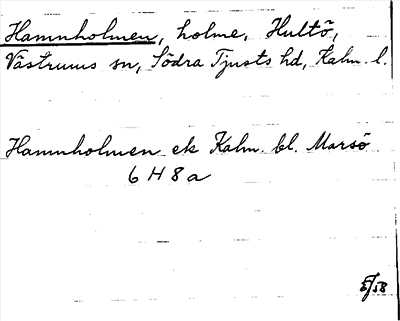 Hamnholmen, holme, Hultö,
Västrums sn, Södra Tjusts hd, Kalm. l.
Hamnholmen ek Kalm. bl. Marsö
6 H 8 a